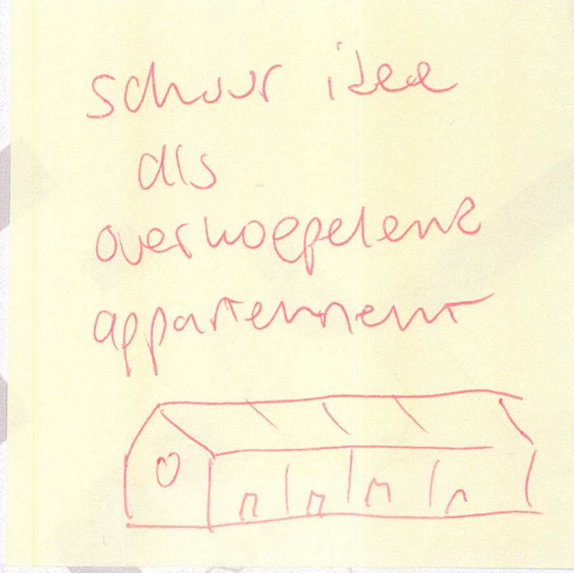 schuur idee
als
overkoepelend
appartement